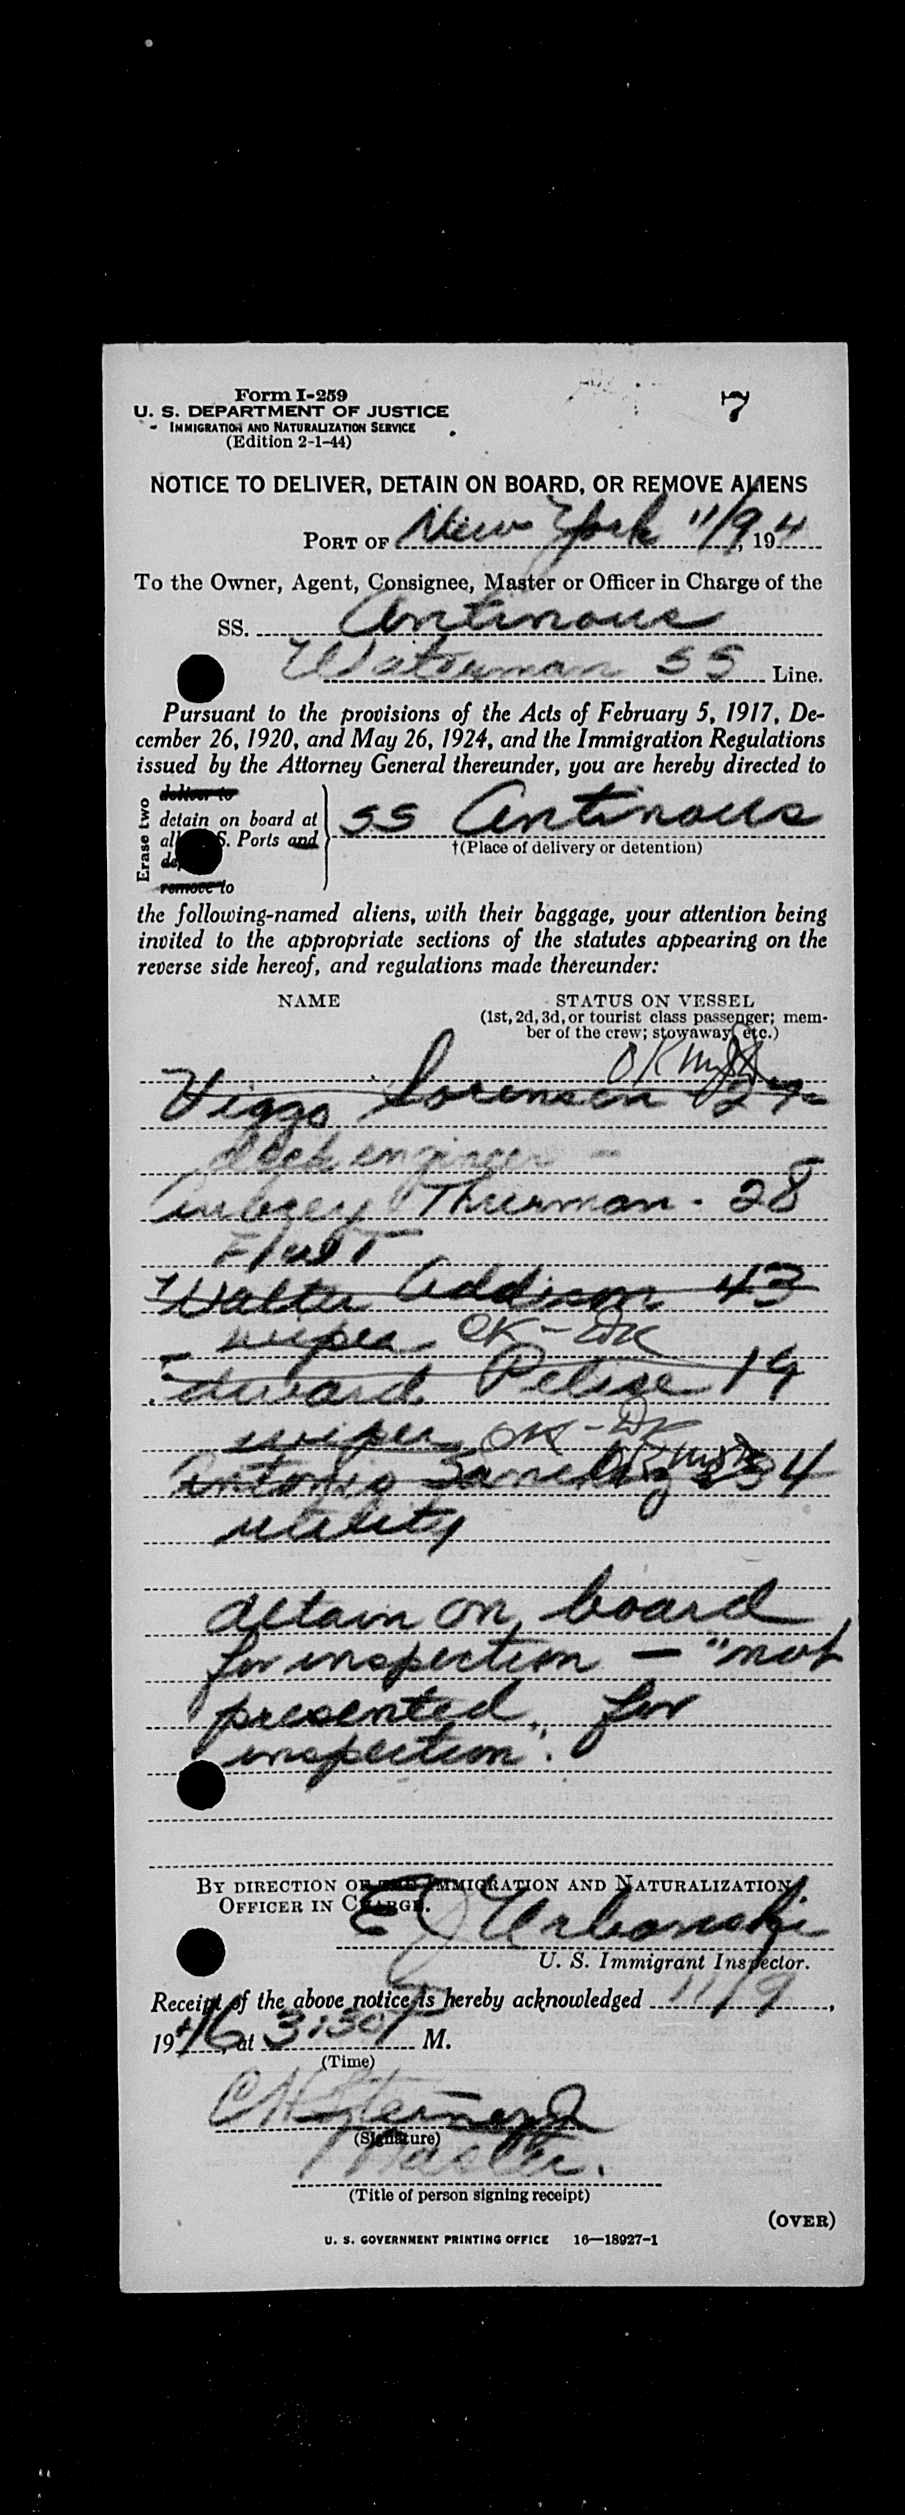 Form I-259
7
U. S. DEPARTMENT OF JUSTICE
IMMIGRATION AND NATURALIZATION SERVICE
(Edition 2-1-44)
NOTICE TO DELIVER, DETAIN ON BOARD, OR REMOVE ALIENS
PORT OF New York 11/9, 194
To the Owner, Agent, Consignee, Master or Officer in Charge of the
SS. Antinous
Waterman SS Line.
Pursuant to the provisions of the Acts of February 5, 1917, De-
cember 26, 1920, and May 26, 1924, and the Immigration Regulations
issued by the Attorney General thereunder, you are hereby directed to
Erase two
deliver to
detain on board at
all S. Ports and
remove to
SS Antinous
†(Place of delivery or detention)
the following-named aliens, with their baggage, your attention being
invited to the appropriate sections of the statutes appearing on the
reverse side hereof, and regulations made thereunder:
NAME
STATUS ON VESSEL
(1st, 2d, 3d, or tourist class passenger; mem-
ber of the crew; stowaway, etc.)
OK
Viggo Sorensen 27
deck engineer -
Thurman - 28
Walter Addison 43
wiper OK -
Edward 19
wiper OK -
Antonio Sanchez 34
utility
detain on board
for inspection - "not
presented for
inspection".
BY DIRECTION OF THE IMMIGRATION AND NATURALIZATION
OFFICER IN CHARGE.
E J Urbanski
U. S. Immigrant Inspector.
Receipt of the above notice is hereby acknowledged 11/9,
1946, at 3:30 P M.
(Time)
(Signature)
Master.
(Title of person signing receipt)
(OVER)
U. S. GOVERNMENT PRINTING OFFICE 16—18927-1